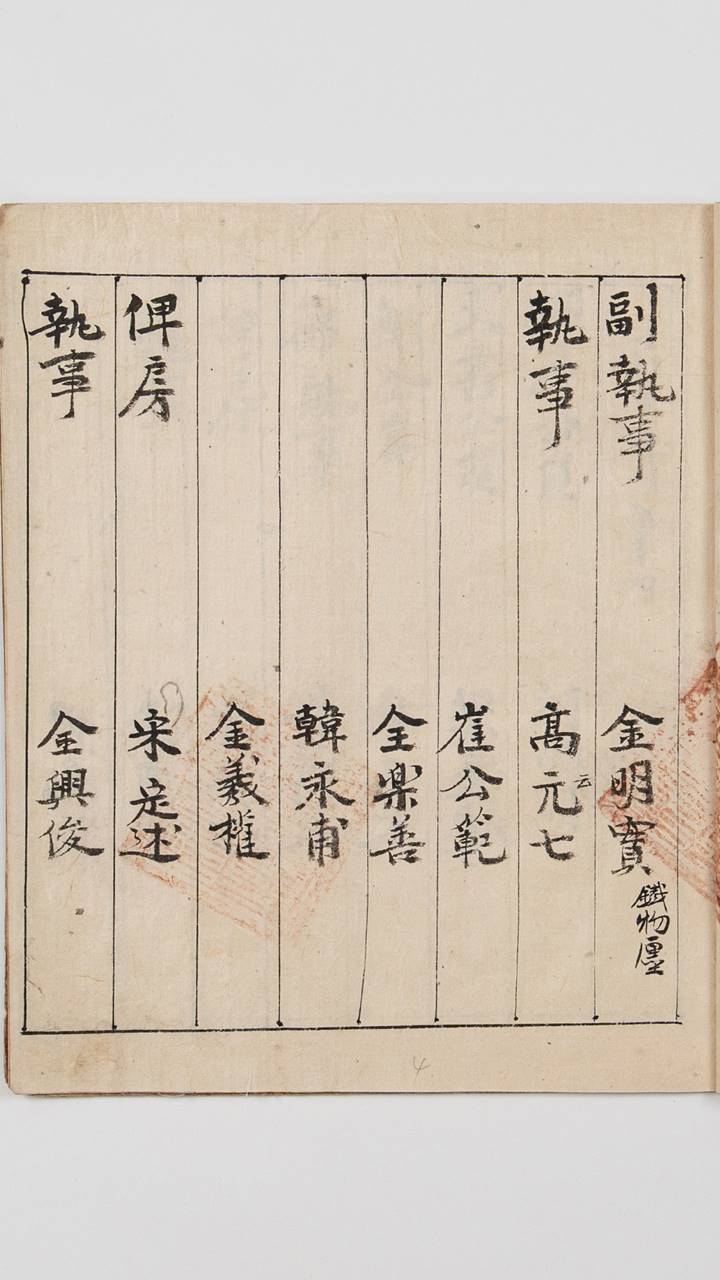 副執事 金明寶 鐵物廛
執事 高元七 云
崔公範
全樂善
韓永甫
金羲權
俾房 宋定述
執事 金興俊
4